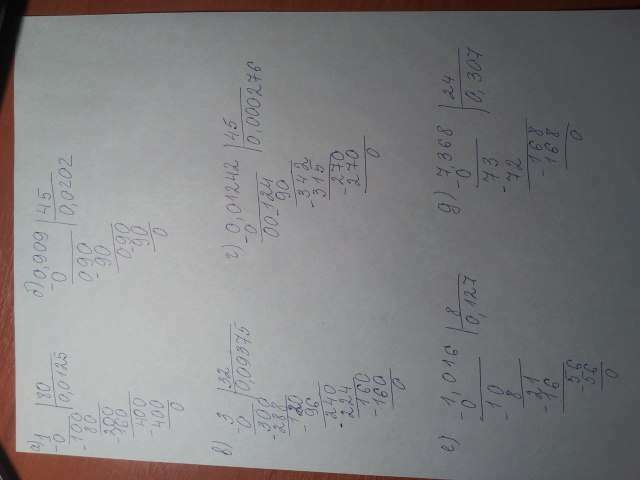 а) 1 | 80
-0 | 0,0125
-100
80
-200
-160
-400
-400
0
б) 0,909 | 45
-0 | 0,0202
090
-90
090
-90
0
в) 3 | 32
-0 | 0,09375
-300
-288
-120
96
-240
-224
-160
-160
0
г) 0,01242 | 45
-0 | 0,000276
00124
-90
-342
315
-270
-270
0
е) 1,016 | 8
-0 | 0,127
-10
8
-21
-16
-56
-56
0
д) 7,368 | 24
-0 | 0,307
73
-72
-168
-168
0